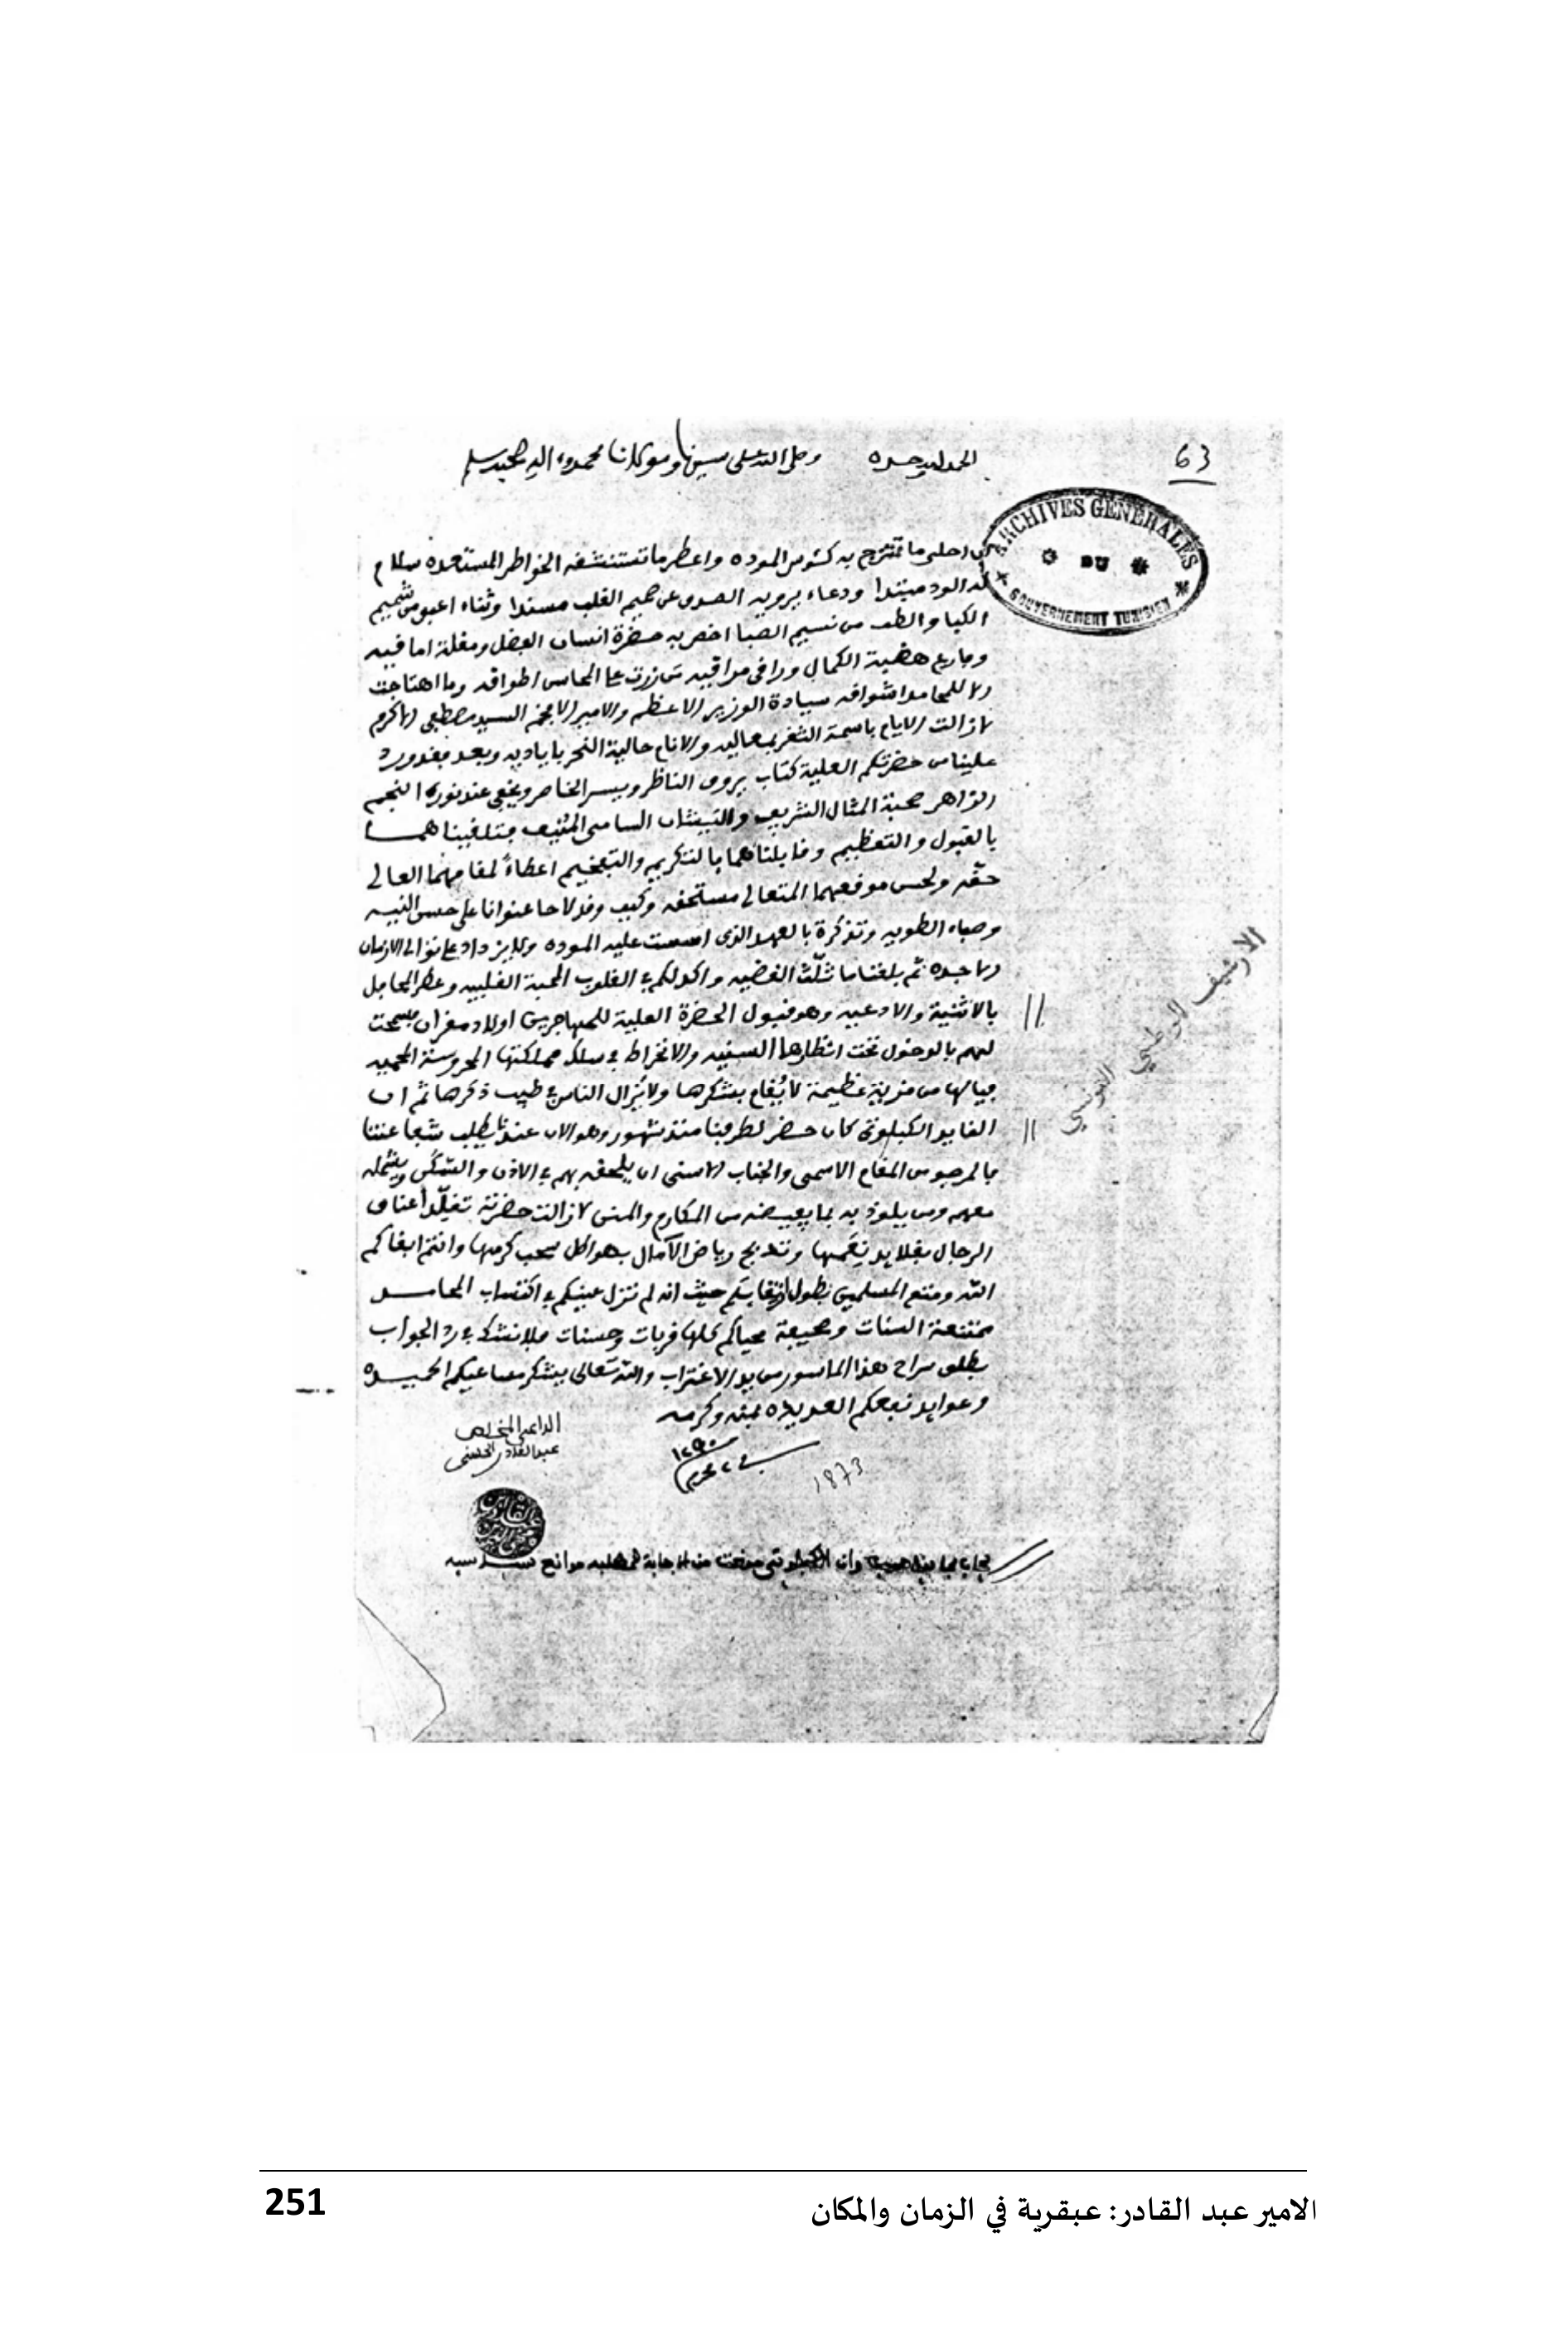 63
الحمد لله وحده وصلى الله على سيدنا ومولانا محمد وءاله وصحبه وسلم
ARCHIVES GENERALES
DU
GOUVERNEMENT TUNISIEN
احلى ما تمتزج به كئوس الموده واعطر ما تستنشقه الخواطر المستعده سلام
الود مبتدا ودعاء يرويه الصدق عن صميم القلب مسندا وثناء اعبق من شميم
الكبا والطف من نسيم الصبا اخص به حضرة انسان الفضل ومقلة اماقيه
هضبة الكمال وراقي مراقيه من زرت على المحاسن اطواقه وما اهتاجت
الا للمحامد اشواقه سيادة الوزير الاعظم والامير الافخم السيد مصطفى الاكرم
لا زالت الايام باسمة الثغر بمعاليه والانام حالية النحر باياديه وبعد فقد ورد
علينا من حضرتكم العلية كتاب يروق الناظر ويسر الخاطر ويخفى عند نوره النجم
الزاهر صحبة المثال الشريف والنيشان السامى المنيف فتلقيناهما
بالقبول والتعظيم وقابلناهما بالتكريم والتفخيم اعطاءً لمقامهما العالى
حقه ولحسن موقعهما المتعالى مستحقه وكيف وقد لاحا عنوانا على حسن النيه
وصفاء الطويه وتذكرة بالعهد الذى اسست عليه الموده ولا يزداد على توالى الازمان
الا جده ثم بلغنا ما ثلّث القضيه واكد لكم فى القلوب المحبة القلبيه وعطر المحافل
بالاثنية والادعيه وهو قبول الحضرة العلية للمهاجرين اولاد مقران فسمحت
لهم بالدخول تحت انظارها السنيه والانخراط فى سلك مملكتها المحروسة المحميه
فيالها من مزية عظيمة لا يُقام بشكرها ولا يزال الناس فى طيب ذكرها ثم ان
القايد الكبلوتى كان حضر لطرفنا منذ شهور وهو الان عندنا يطلب شفاعتنا
فالمرجو من المقام الاسمى والجناب الاسنى ان يلحقه بهم فى الاذن والسكنى ويشمله
معهم ومن يلوذ به بما يفيضه من المكارم والمنى لا زالت حضرته تقلّد أعناق
الرجال بقلايد نعمها وتدبج رياض الآمال بهواطل سحب كرمها وانتم ابقاكم
الله ومتع المسلمين بطول حيث انه لم تزل عينكم فى اكتساب المحامد
ممتنعة السنات وصحيفة محياكم كلها قربات وحسنات فلا نشك فى رد الجواب
بطلق سراح هذا الماسور من يد الاغتراب والله تعالى يشكر مساعيكم الحميده
وعوايد نفعكم العديده بمنه وكرمه
الداعى المخلص
عبد القادر الحسنى
فى ٢ محرم ١٢٩٠
1873
الارشيف الوطني التونسي
251
الامير عبد القادر: عبقرية في الزمان والمكان